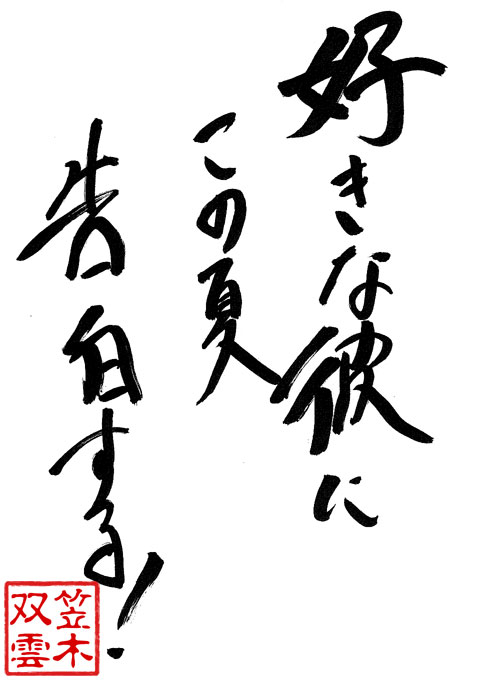 好きな彼に
この夏
告白する！
笠木
双雲